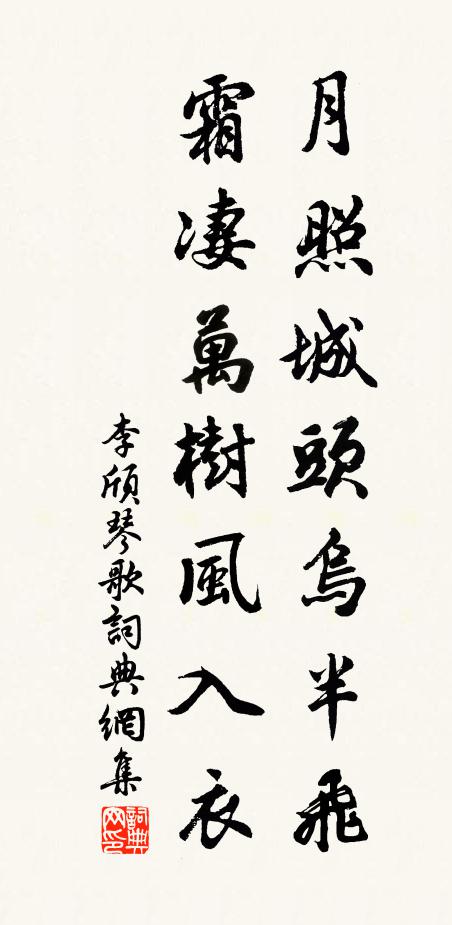 月照城頭烏半飛
霜凄萬樹風入衣
李頎琴歌詞典網集
詞典网印